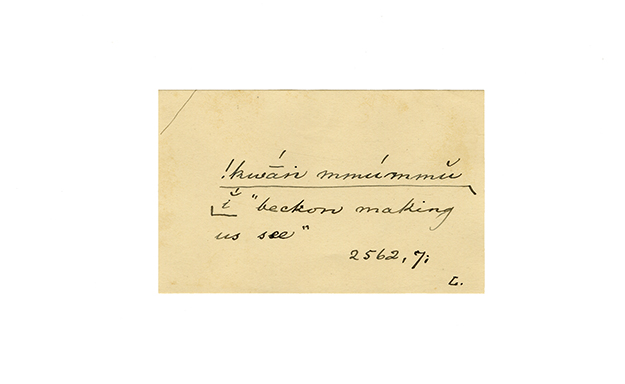 !kwā́ń mmúmmŭ
ĭ "beckon making
us see"
2562, 7;
L.